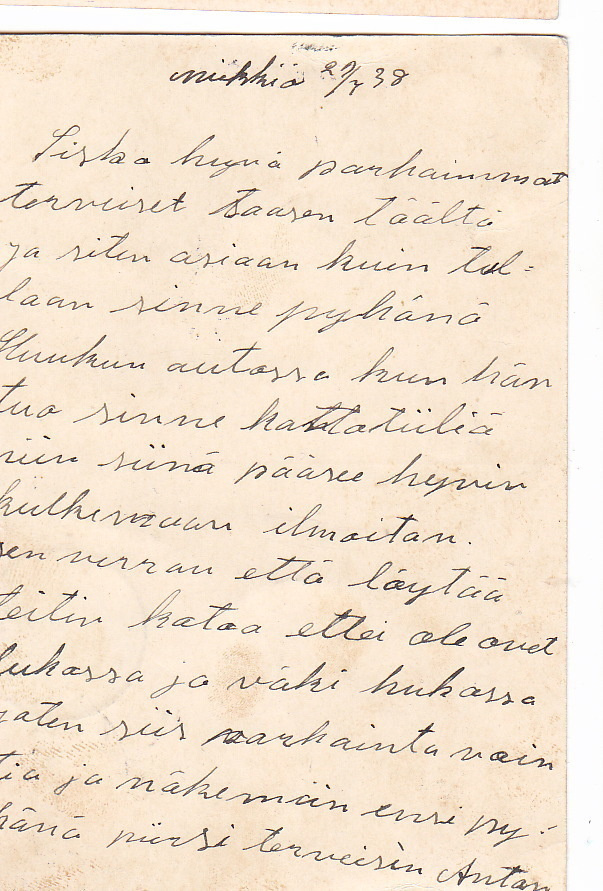 Miekkiö 29/7 38
Siska hyvä parhaimmat
terveiset taasen täältä
ja siten asiaan kuin tul-
laan sinne pyhänä
Huukun autossa kun hän
tuo sinne kattotiiliä
niin siinä pääsee hyvin
kulkemaan ilmoitan.
sen verran että löytää
teitin kotoa ettei ole ovet
lukossa ja väki hukassa
joten siis parhainta voin
tia ja näkemiin ensi py-
hänä piirsi terveisin Antan